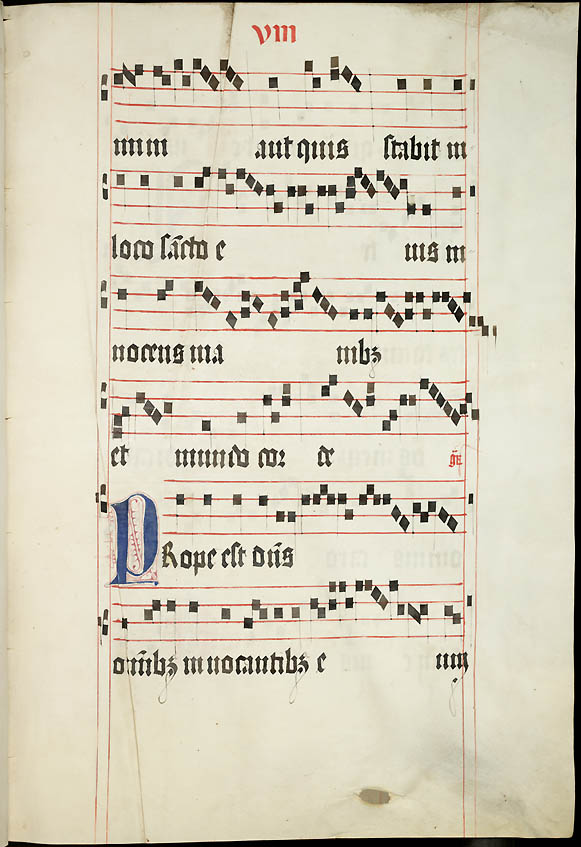 viii
num aut quis stabit in
loco sc̄to eius in
nocens manibꝫ
et mundo corde gr̄
PRope est dn̄s
om̄ibꝫ inuocantibꝫ eum